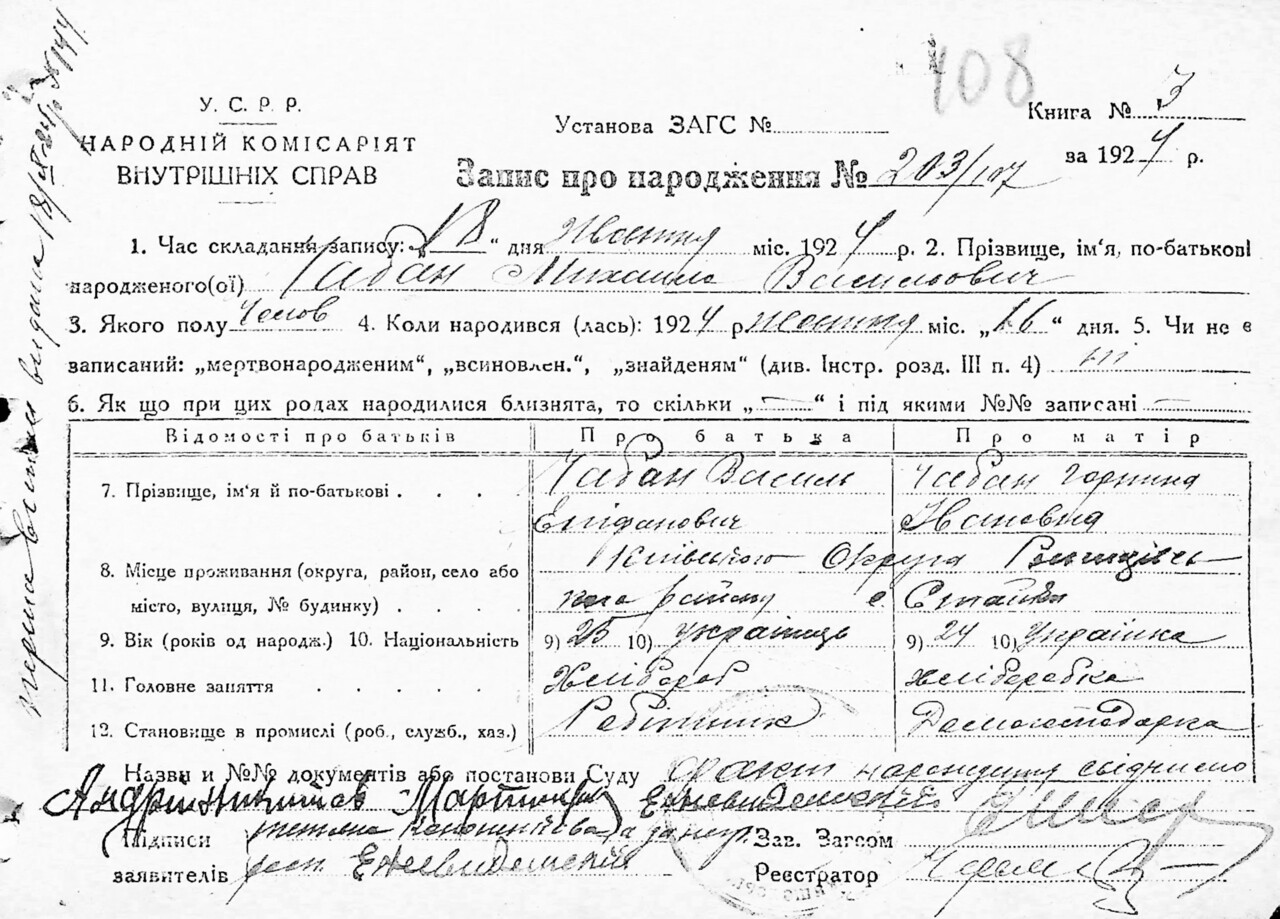 108
У. С. Р. Р.
НАРОДНІЙ КОМІСАРІЯТ
ВНУТРІШНІХ СПРАВ
Установа ЗАГС №
Книга № 3
за 1924 р.
Запис про народження № 203/107
1. Час складання запису: „18“ дня Жовтня міс. 1924 р. 2. Прізвище, ім‘я, по-батькові
народженого(ої) Чабан Михайло Васильович
3. Якого полу Чолов 4. Коли народився (лась): 1924 р Жовтня міс. „16“ дня. 5. Чи не є
записаний: „мертвонародженим“, „всиновлен.“, „знайденям“ (див. Інстр. розд. III п. 4) ні
6. Як що при цих родах народилися близнята, то скільки „—“ і під якими №№ записані —
Відомості про батьків Про батька Про матір
7. Прізвище, ім‘я й по-батькові . . . . Чабан Василь Чабан Горпина
Епіфанович Ивановна
8. Місце проживання (округа, район, село або Київського Округа
місто, вулиця, № будинку) . . . . району с. Стайки
9. Вік (років од народж.) 10. Національність 9) 25 10) Українець 9) 24 10) Українка
11. Головне заняття . . . . . Хлібороб Хліборобка
12. Становище в промислі (роб., служб., хаз.) Робітник Домогосподарка
Назви и №№ документів або постанови Суду факт народження
Підписи
заявителів
Зав. Загсом
Реєстратор